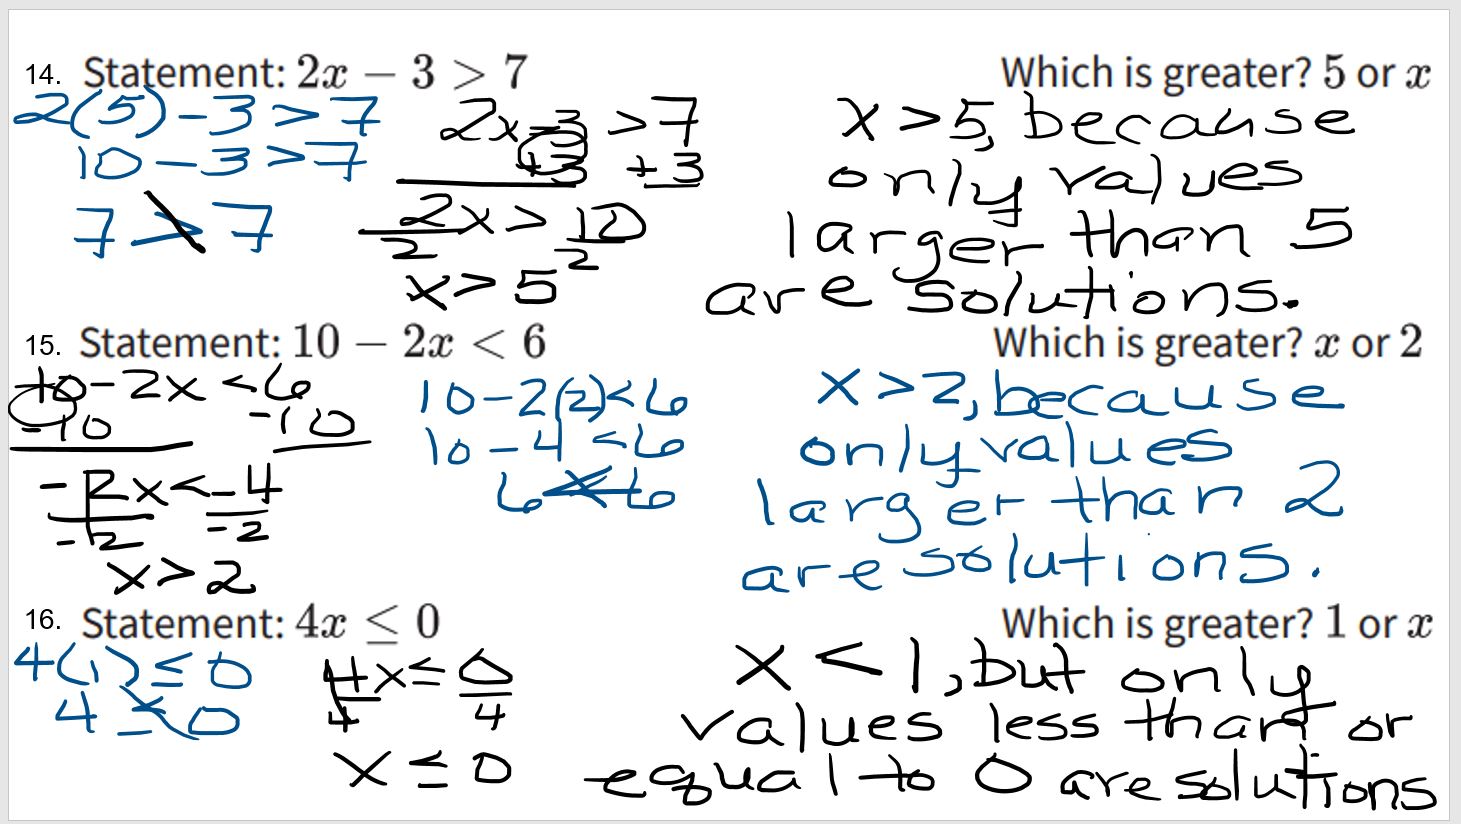 14. Statement: 2x − 3 > 7 Which is greater? 5 or x
2(5) - 3 > 7
10 - 3 > 7
7 > 7
2x - 3 > 7
+3 +3
2x > 10
2 2
x > 5
x > 5, because
only values
larger than 5
are solutions.
15. Statement: 10 − 2x < 6 Which is greater? x or 2
10 - 2x < 6
-10 -10
-2x < -4
-2 -2
x > 2
10 - 2(2) < 6
10 - 4 < 6
6 < 6
x > 2, because
only values
larger than 2
are solutions.
16. Statement: 4x ≤ 0 Which is greater? 1 or x
4(1) ≤ 0
4 ≤ 0
4x ≤ 0
4 4
x ≤ 0
x < 1, but only
values less than or
equal to 0 are solutions